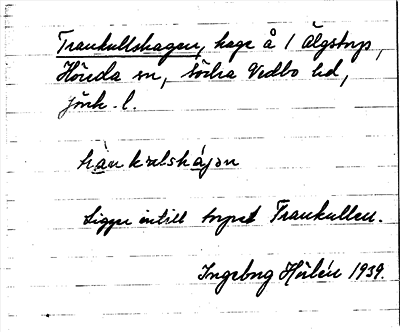 Trankullshagen, hage å 1 Älgstorp,
Höreda sn, Södra Vedbo hd,
Jönk. l.
Ligger intill torpet Trankullen.
Ingeborg Hülén 1939.